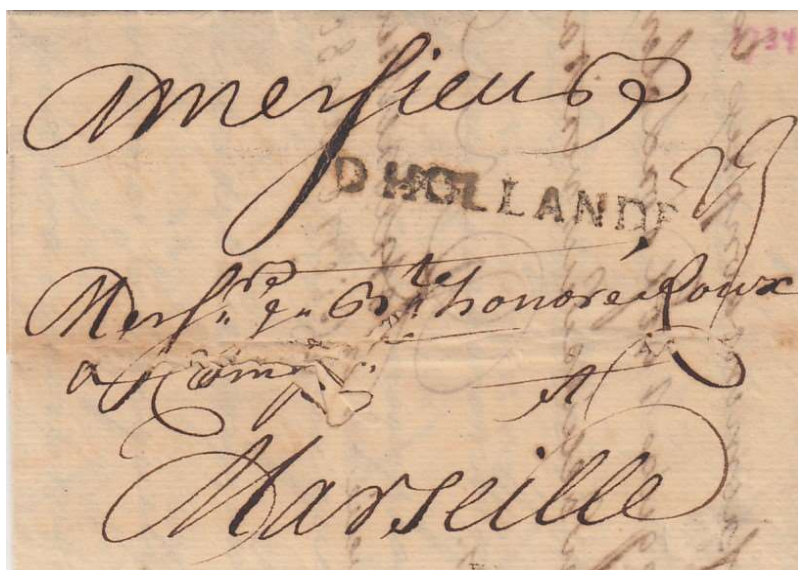 1734
A messieurs
D HOLLANDE 23
Mess.rs J.n B.te honoré Roux
& Comp.
A
Marseille